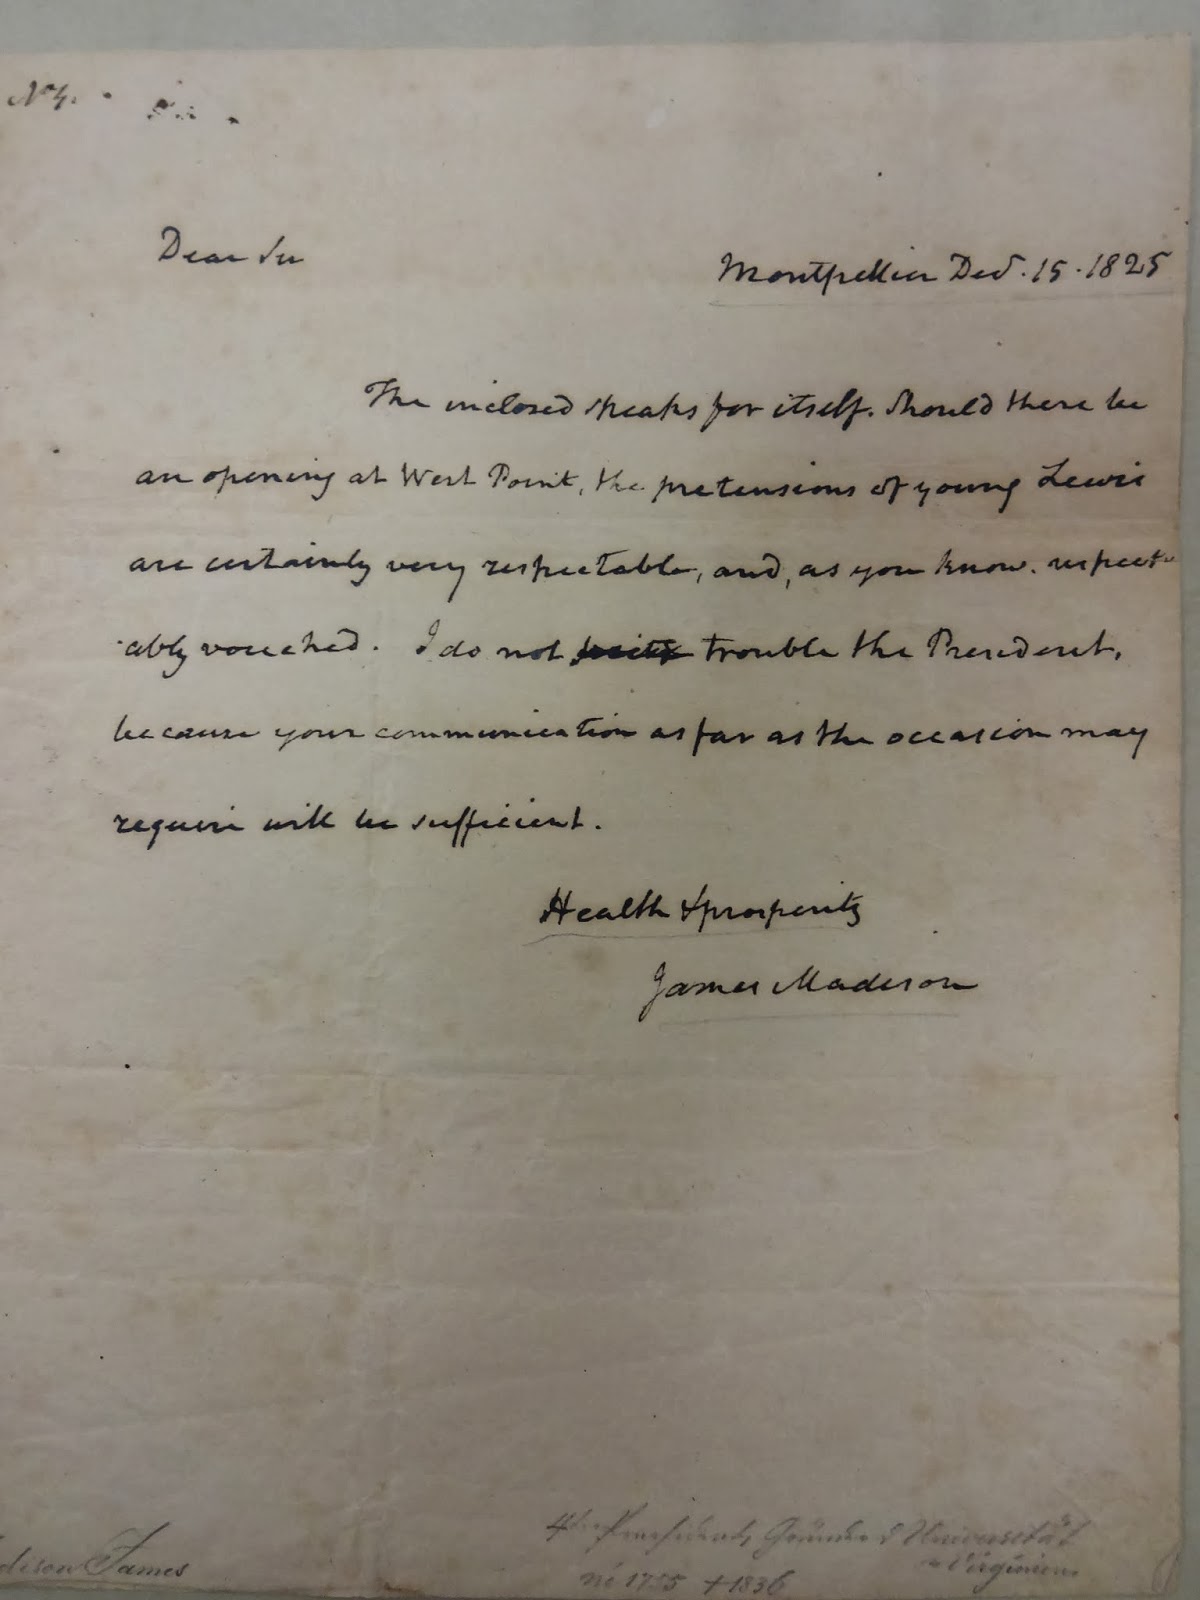 No 4.
Dear Sir
Montpellier Decr. 15. 1825
The inclosed speaks for itself. Should there be
an opening at West Point, the pretensions of young Lewis
are certainly very respectable, and, as you know, respect-
ably vouched. I do not trouble the President,
because your communication as far as the occasion may
require will be sufficient.
Health & prosperity
James Madison
dison James
4ter Präsident, Gründer d Universität
Virginien
né 17 † 1836